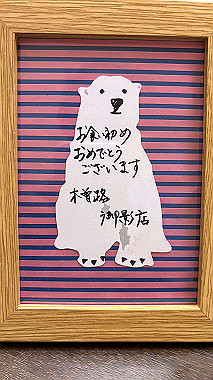 お食い初め
おめでとう
ございます
木曽路
御影店